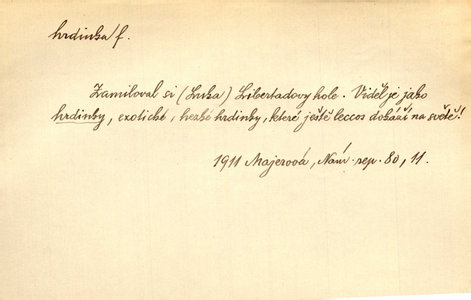 hrdinka f.
Zamiloval si (Luka) Libertadovy hole. Viděl je jako
hrdinky, exotické, hezké hrdinky, které ještě leccos dokáží na světě!
1911 Majerová, Nám. rep. 80, 11.